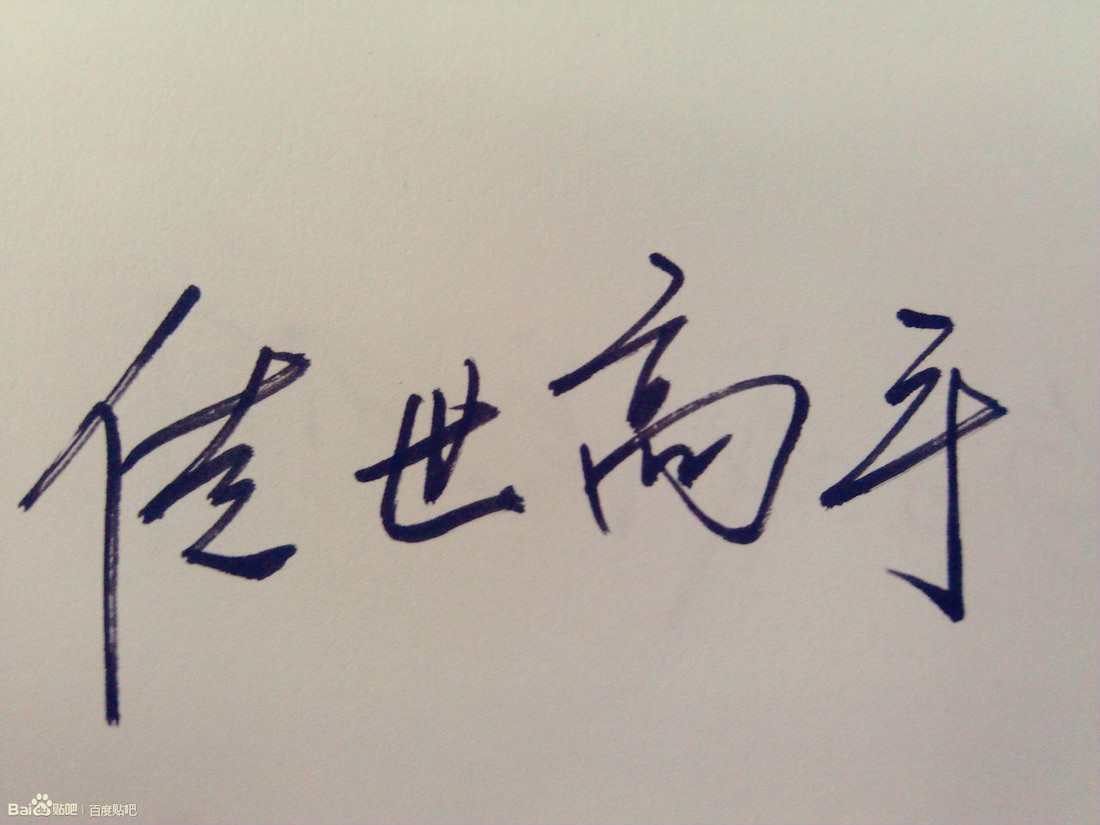 佳世高平
Bai贴吧 | 百度贴吧